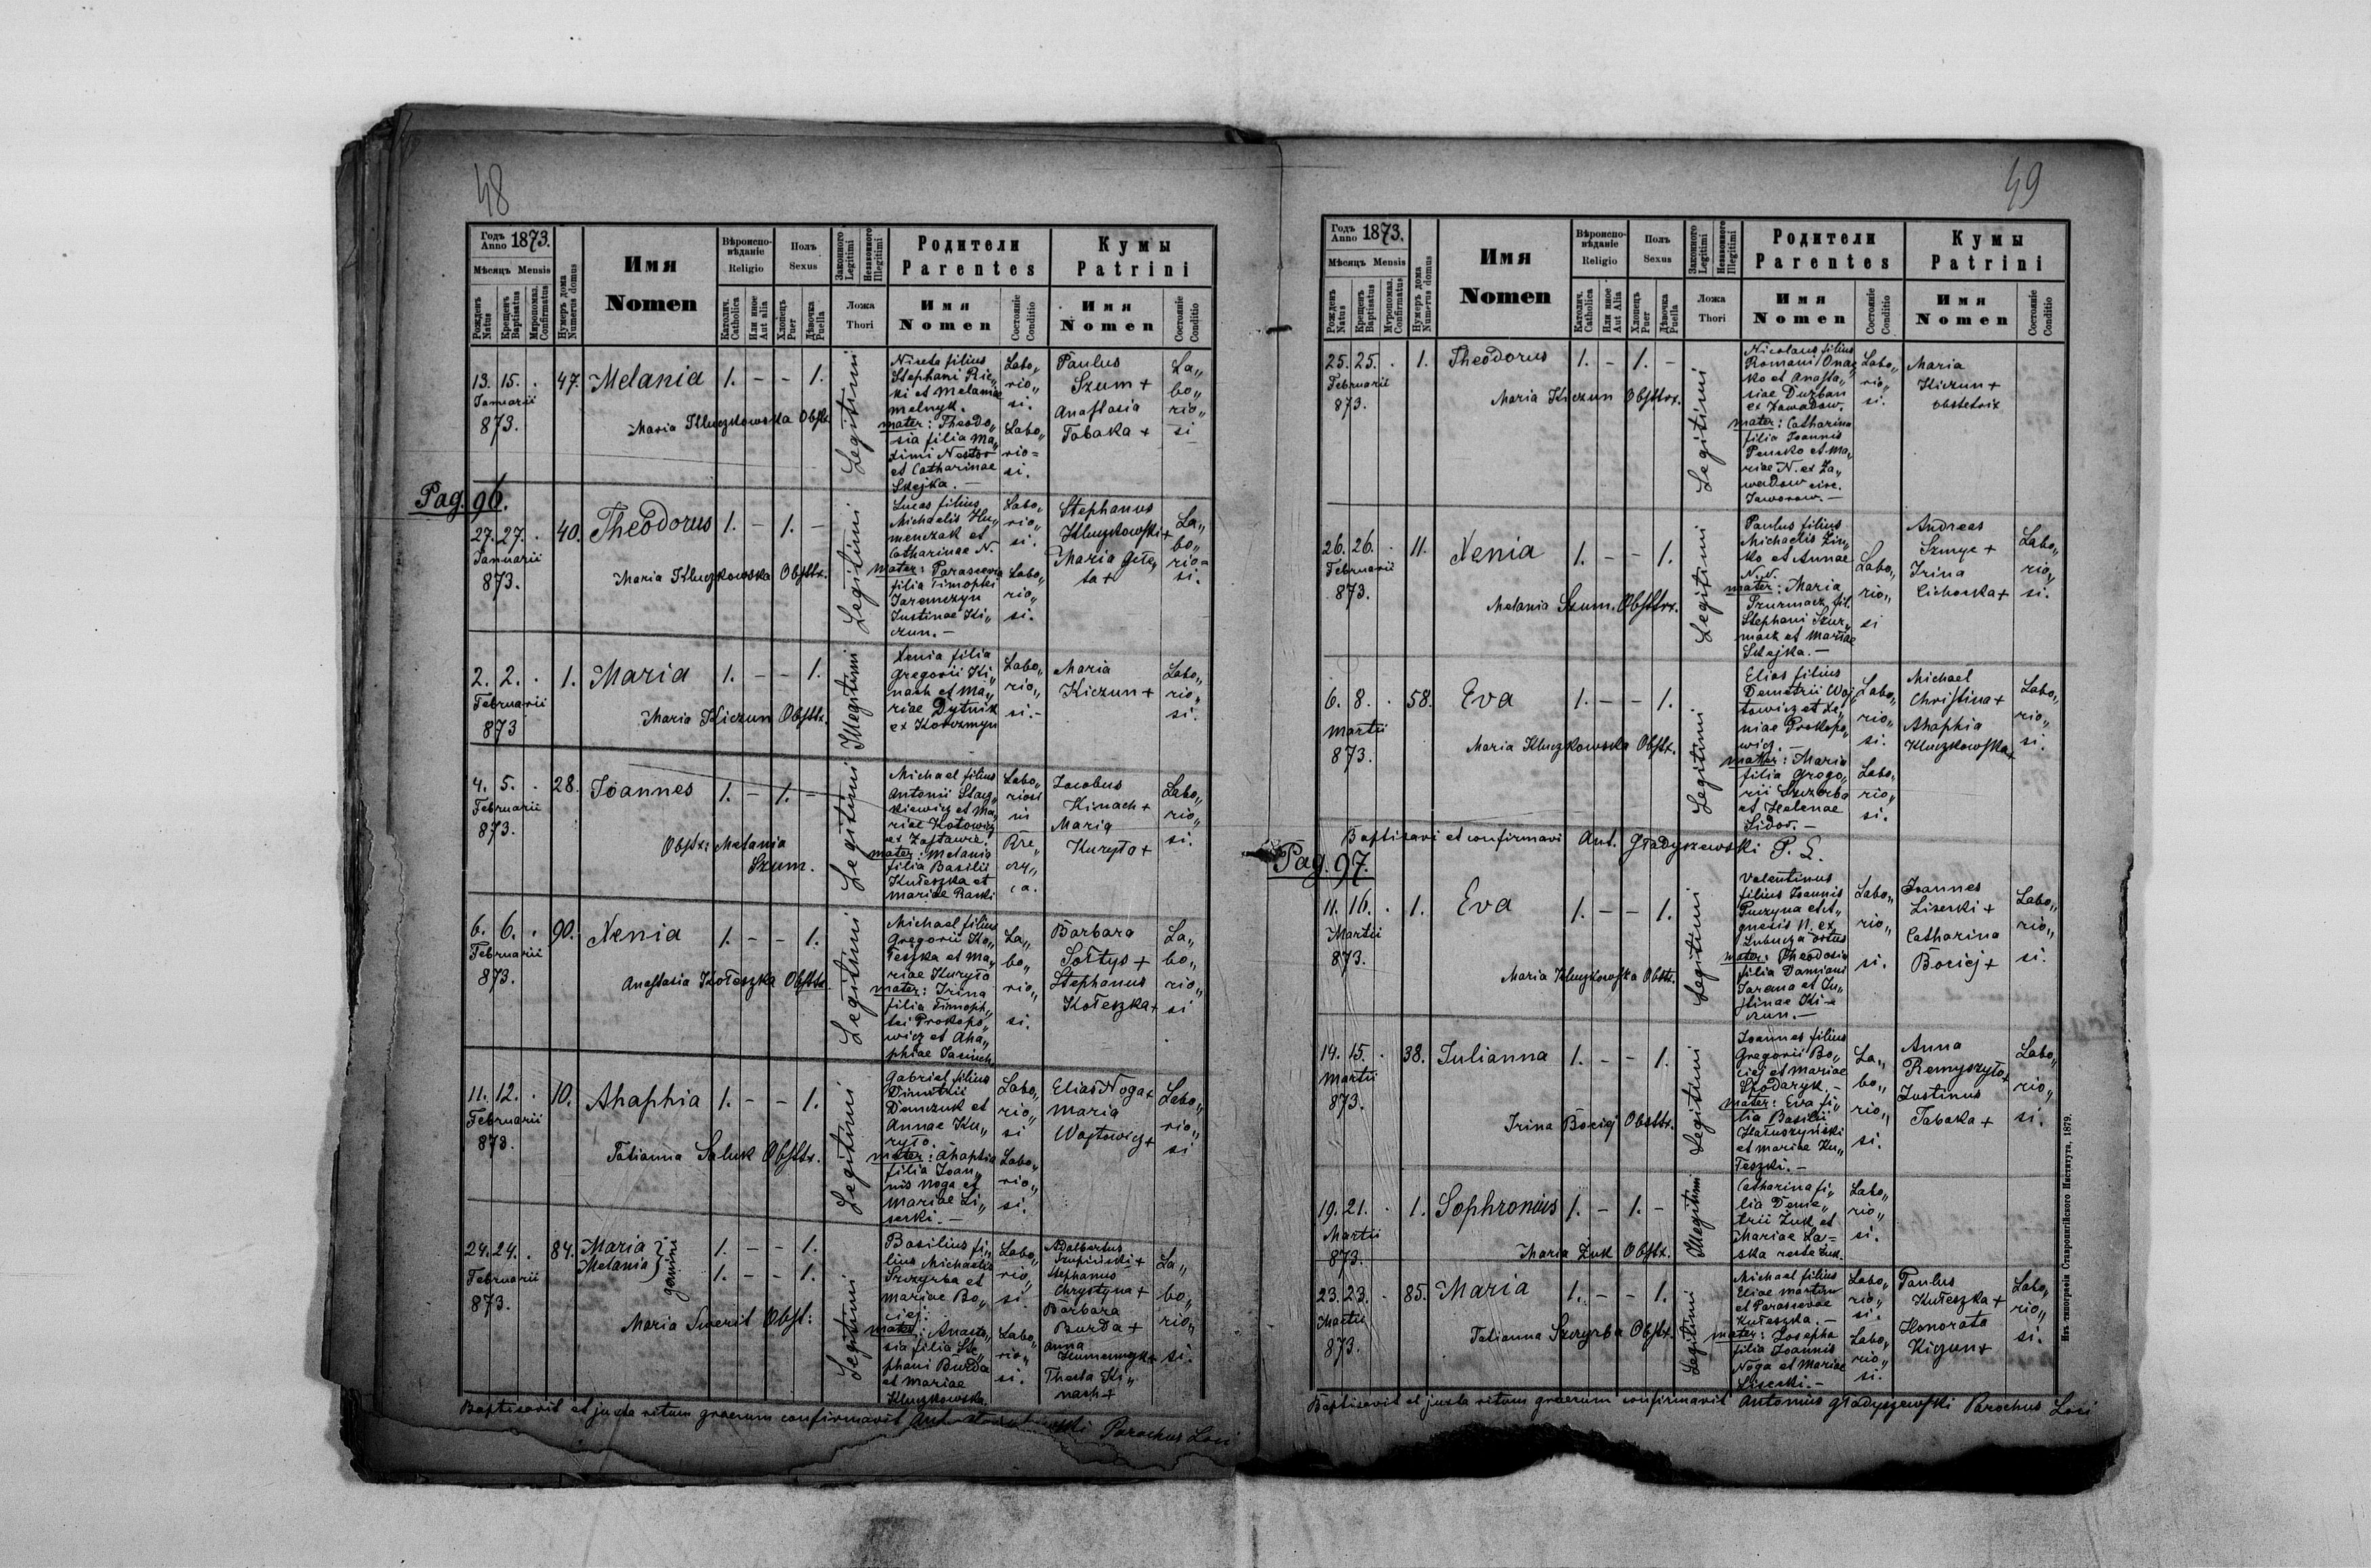 48
Годъ Anno 1873.
Мѣсяцъ Mensis
Рожденъ Natus
Крещенъ Baptisatus
Миропомаз. Confirmatus
Нумеръ дома Numerus domus
Имя
Nomen
Вѣроисповѣданіе
Religio
Католич. Catholica
Или иное Aut alia
Полъ
Sexus
Хлопецъ Puer
Дѣвочка Puella
Законного Legitimi
Незаконного Illegitimi
Ложа
Thori
Родители
Parentes
Имя
Nomen
Состояніе Conditio
Кумы
Patrini
Имя
Nomen
Состояніе Conditio
13. 15. . 47. Melania 1. - - 1.
Januarii
873.
Maria Kluczkowska Obst.
Legitimi
Niceta filius
Stephani Ric„
ki et Melaniae
Melnyk.
mater: Theodo„
sia filia Ma„
ximi Nestor
et Catharinae
Skejka. —
Labo„
rio„
si.
Labo„
rio=
si.
Paulus
Szum +
Anastasia
Tabaka +
La„
bo„
rio„
si
Pag. 96.
27. 27. . 40. Theodorus 1. - 1. -
Januarii
873.
Maria Kluczkowska Obsttx.
Legitimi
Lucas filius
Michaelis Hu„
menczak et
Catharinae N.
mater: Parascevia
filia Timophei
Jaremczyn
Justinae Ki„
czun. —
Labo„
rio„
si.
Labo„
rio„
si.
Stephanus
Kluczkowski +
Maria Gełe„
ta +
La„
bo„
rio=
si.
2. 2. . 1. Maria 1. - - 1.
Februarii
873
Maria Kiczun Obsttx.
Illegitimi
Xenia filia
Gregorii Ki„
nach et Ma„
riae Dytnik
ex Korczmyn
Labo„
rio„
si.-
Maria
Kiczun +
Labo„
rio„
si.
4. 5. . 28. Joannes 1. - 1. -
Februarii
873.
Obstx: Melania
Szum.
Legitimi
Michael filius
Antonii Stay„
kiewicz et Ma„
riae Kotowicz
ex Zastawie.
mater: Melania
filia Basilii
Kułeszka et
Mariae Racki
Labo„
Jacobus
Kinach +
Maria
Kuryło +
Labo„
rio„
si.
6. 6. . 90. Xenia 1. - - 1.
Februarii
873.
Anastasia Kołeszka Obsttx.
Legitimi
Michael filius
Gregorii Ko„
łeszka et Ma„
riae Kuryło
mater: Irina
filia Timoph„
tei Prokopo„
wicz et Aha„
phiae
La„
bo„
rio„
si.
Barbara
Sołtys +
Stephanus
Kołeszka +
La„
bo„
rio„
si
11. 12. . 10. Ahaphia 1. - - 1.
Februarii
873.
Tatianna Saluk Obsttx.
Legitimi
Gabriel filius
Dimitrii
Demczuk et
Annae Ku„
ryło.
mater: Ahaphia
filia Joan„
nis Noga et
Mariae Li„
secki. —
Labo„
rio„
si
Labo„
rio„
si.
Elias Noga +
Maria
Wojtowicz +
Labo„
rio„
si
24. 24. . 84. Maria
Melania } gemini
1. - - 1.
1. - - 1.
Februarii
873.
Maria Smereit Obst:
Legitimi
Basilius fi„
lius Michaelis
Szczyrba et
Mariae Bo„
ciej.
mater: Anasta„
sia filia Ste„
phani Burda
et Mariae
Kluczkowska.
Labo„
rio„
si.
Labo„
rio„
si.
Adalbertus
Stephanus
Chrystyna +
Barbara
Burda +
Anna
Thecla Ki„
nach +
La„
bo„
rio„
si.
Baptisavit et juxta ritum graecum confirmavit Ant. Parochus Loci
49
Годъ Anno 1873.
Мѣсяцъ Mensis
Рожденъ Natus
Крещенъ Baptisatus
Мѵропомаз. Confirmatus
Нумеръ дома Numerus domus
Имя
Nomen
Вѣроисповѣданіе
Religio
Католич. Catholica
Или иное Aut Alia
Полъ
Sexus
Хлопецъ Puer
Дѣвочка Puella
Законного Legitimi
Незаконного Illegitimi
Ложа
Thori
Родители
Parentes
Имя
Nomen
Состояніе Conditio
Кумы
Patrini
Имя
Nomen
Состояніе Conditio
25. 25. . 1. Theodorus 1. - 1. -
Februarii
873.
Maria Kiczun Obsttrx.
Legitimi
Nicolaus filius
Romani Onac„
ko et Anasta„
siae Durban
ex Zawadow.
mater: Catharina
filia Joannis
Pensko et Ma„
riae N. ex Za„
wadow circ.
Jaworow. —
Labo„
rio„
si.
Maria
Kiczun +
obstetrix
26. 26. . 11. Xenia 1. - - 1.
Februarii
873.
Melania Szum. Obsttrx.
Legitimi
Paulus filius
Michaelis Zin„
ko et Annae
N. N.
mater: Maria
Szurmacz fil.
Stephani Szur„
macz et Mariae
Skejka. —
Labo„
rio„
si
Andreas
Szmyc +
Irina
Cichocka +
Labo„
rio„
si.
6. 8. . 58. Eva 1. - - 1.
Martii
873.
Maria Kluczkowska Obsttx.
Legitimi
Elias filius
Demetrii Woj„
towicz et Xe„
niae Prokopo„
wicz. —
mater: Maria
filia Grego„
rii Szczerba
et Helenae
Sidor. —
Labo„
rio„
si.
Labo„
rio„
si.
Michael
Christina +
Ahaphia
Kluczkowska +
Labo„
rio„
si.
Baptisavi et confirmavi Ant. Gładyszewski P. L.
Pag. 97.
11. 16. . 1. Eva 1. - - 1.
Martii
873.
Maria Kluczkowska Obsttx.
Legitimi
Valentinus
filius Joannis
Puczyna et A„
gnesis N. ex
Lubycza ortus
mater: Theodosia
filia Damiani
Jarema et Ju„
stinae Ki-
czun. —
Labo„
rio„
si.
Joannes
Lisecki +
Catharina
Bociej +
Labo„
rio„
si.
14. 15. . 38. Julianna 1. - - 1.
Martii
873.
Irina Bociej Obsttx.
Legitimi
Joannes filius
Gregorii Bo„
ciej et Mariae
Spodaryk. —
mater: Eva fi„
lia Basilii
Hałuszyński
et Mariae Ku„
łeszki. —
La„
bo„
rio„
si.
Anna
Remyszyło +
Justinus
Tabaka +
Labo„
rio„
si.
19. 21. . 1. Sophronius 1. - 1. -
Martii
873.
Maria Zuk Obsttx.
Illegitimi
Catharina fi„
lia Deme„
trii Zuk et
Mariae La=
ska recte Zuk.
Labo„
rio„
si.
23. 23. . 85. Maria 1. - - 1.
Martii
873.
Tatianna Szczyrba Obsttx.
Legitimi
Michael filius
Eliae Martiuw
et Parascevae
Kułeszka. —
mater: Josepha
filia Joannis
Noga et Mariae
Lisecki. —
Labo„
rio„
si.
Labo„
rio„
si.
Paulus
Kułeszka +
Honorata
Kiczun +
Labo„
rio„
si.
Baptisavit et juxta ritum graecum confirmavit Antonius Gładyszewski Parochus Loci
Изъ типографіи Ставропигійского Института, 1879.